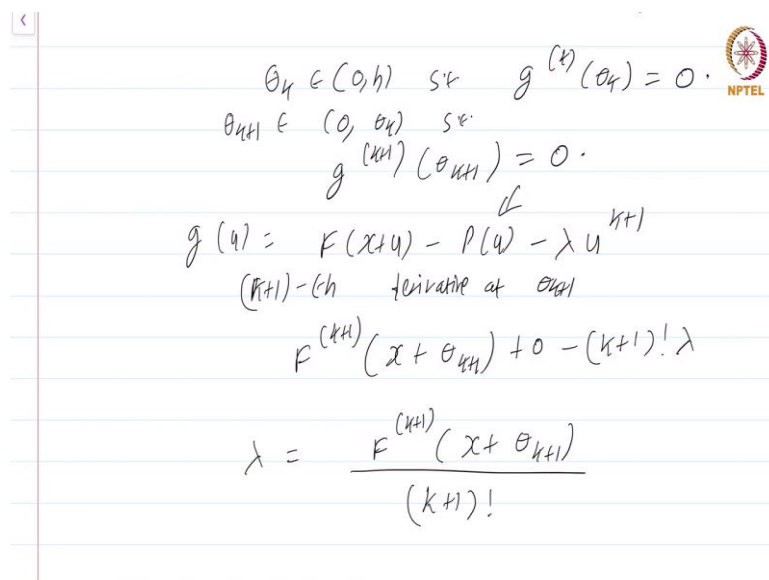 θₖ ∈ (0,h) s.t g⁽ᵏ⁾(θₖ) = 0.
NPTEL
θₖ₊₁ ∈ (0, θₖ) s.t.
g⁽ᵏ⁺¹⁾(θₖ₊₁) = 0.
g(u) = F(x+u) − P(u) − λu^{k+1}
(k+1)-th derivative at θₖ₊₁
F⁽ᵏ⁺¹⁾(x + θₖ₊₁) + 0 − (k+1)! λ
λ = F⁽ᵏ⁺¹⁾(x + θₖ₊₁)
(k+1)!